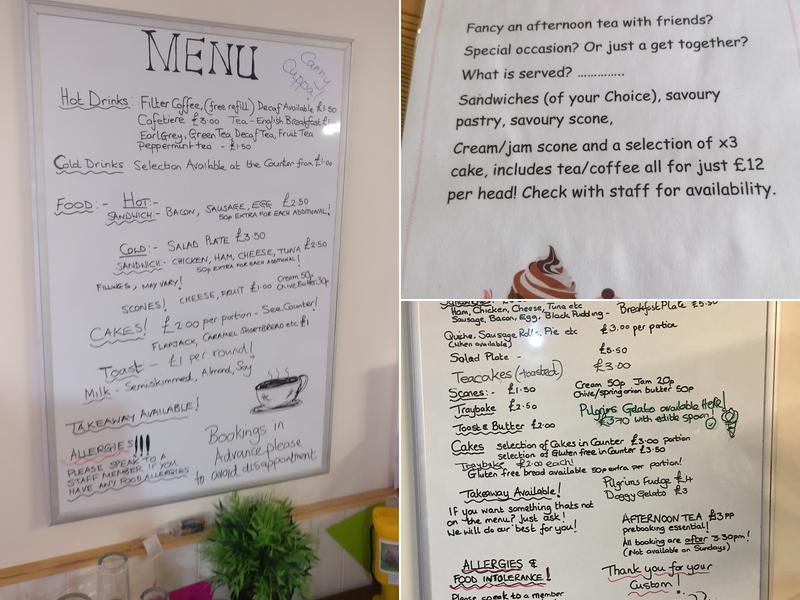 MENU
Canny
Cuppa!
Hot Drinks: Filter Coffee, (free refill) Decaf Available £1.50
Cafetiere £3.00 Tea - English Breakfast
Earl Grey, Green Tea, Decaf Tea, Fruit Tea
Peppermint tea - £1.50
Cold Drinks Selection Available at the Counter from £1.00
FOOD:- HOT:-
SANDWICH - BACON, SAUSAGE, EGG £2.50
50p EXTRA FOR EACH ADDITIONAL!
COLD:- SALAD PLATE £3.50
SANDWICH:- CHICKEN, HAM, CHEESE, TUNA £2.50
50p EXTRA FOR EACH ADDITIONAL!
FILLINGS, MAY VARY!
SCONES! CHEESE, FRUIT £1.00 Cream 50p
Chive Butter 30p
CAKES! £2.00 per portion - See Counter!
FLAPJACK, CARAMEL SHORTBREAD etc £1
Toast - £1 per round!
Milk - Semiskimmed, Almond, Soy
TAKEAWAY AVAILABLE!
ALLERGIES!!!
PLEASE SPEAK TO A
STAFF MEMBER IF YOU
HAVE ANY FOOD ALLERGIES
Bookings in
Advance please
to avoid disappointment
Fancy an afternoon tea with friends?
Special occasion? Or just a get together?
What is served? ..............
Sandwiches (of your Choice), savoury
pastry, savoury scone,
Cream/jam scone and a selection of x3
cake, includes tea/coffee all for just £12
per head! Check with staff for availability.
Ham, Chicken, Cheese, Tuna etc
Sausage, Bacon, Egg, Black Pudding - Breakfast Plate £5.50
Quiche, Sausage Roll, Pie etc £3.00 per portion
(when available)
Salad Plate - £5.50
Teacakes (toasted) £3.00
Scones:- £1.50 Cream 50p Jam 20p
Chive/spring onion butter 50p
Traybake £2.50 Pilgrims Gelato available Here!
£3.70 with edible spoon!
Toast & Butter £2.00
Cakes selection of Cakes in Counter £3.00 portion
selection of Gluten free in Counter £3.50
Traybake £2.00 each!
Gluten free bread available 50p extra per portion!
Takeaway Available! Pilgrims Fudge £4
Doggy Gelato £3
If you want something thats not
on the menu? just ask!
We will do our best for you!
AFTERNOON TEA £13pp
prebooking essential!
All booking are after 3.30pm!
(Not available on Sundays)
ALLERGIES &
FOOD INTOLERANCE!
Please speak to a member
Thank you for your
Custom!